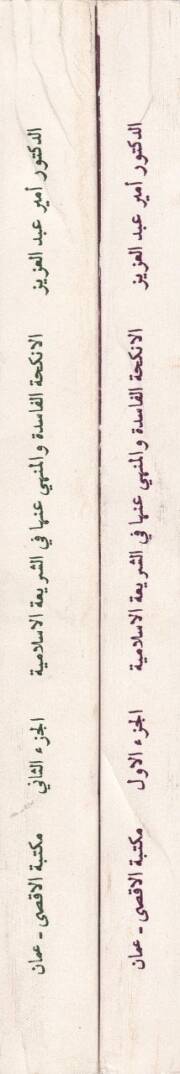 الدكتور أمير عبد العزيز    الانكحة الفاسدة والمنهي عنها في الشريعة الاسلامية    الجزء الاول    مكتبة الاقصى - عمان
الدكتور أمير عبد العزيز    الانكحة الفاسدة والمنهي عنها في الشريعة الاسلامية    الجزء الثاني    مكتبة الاقصى - عمان